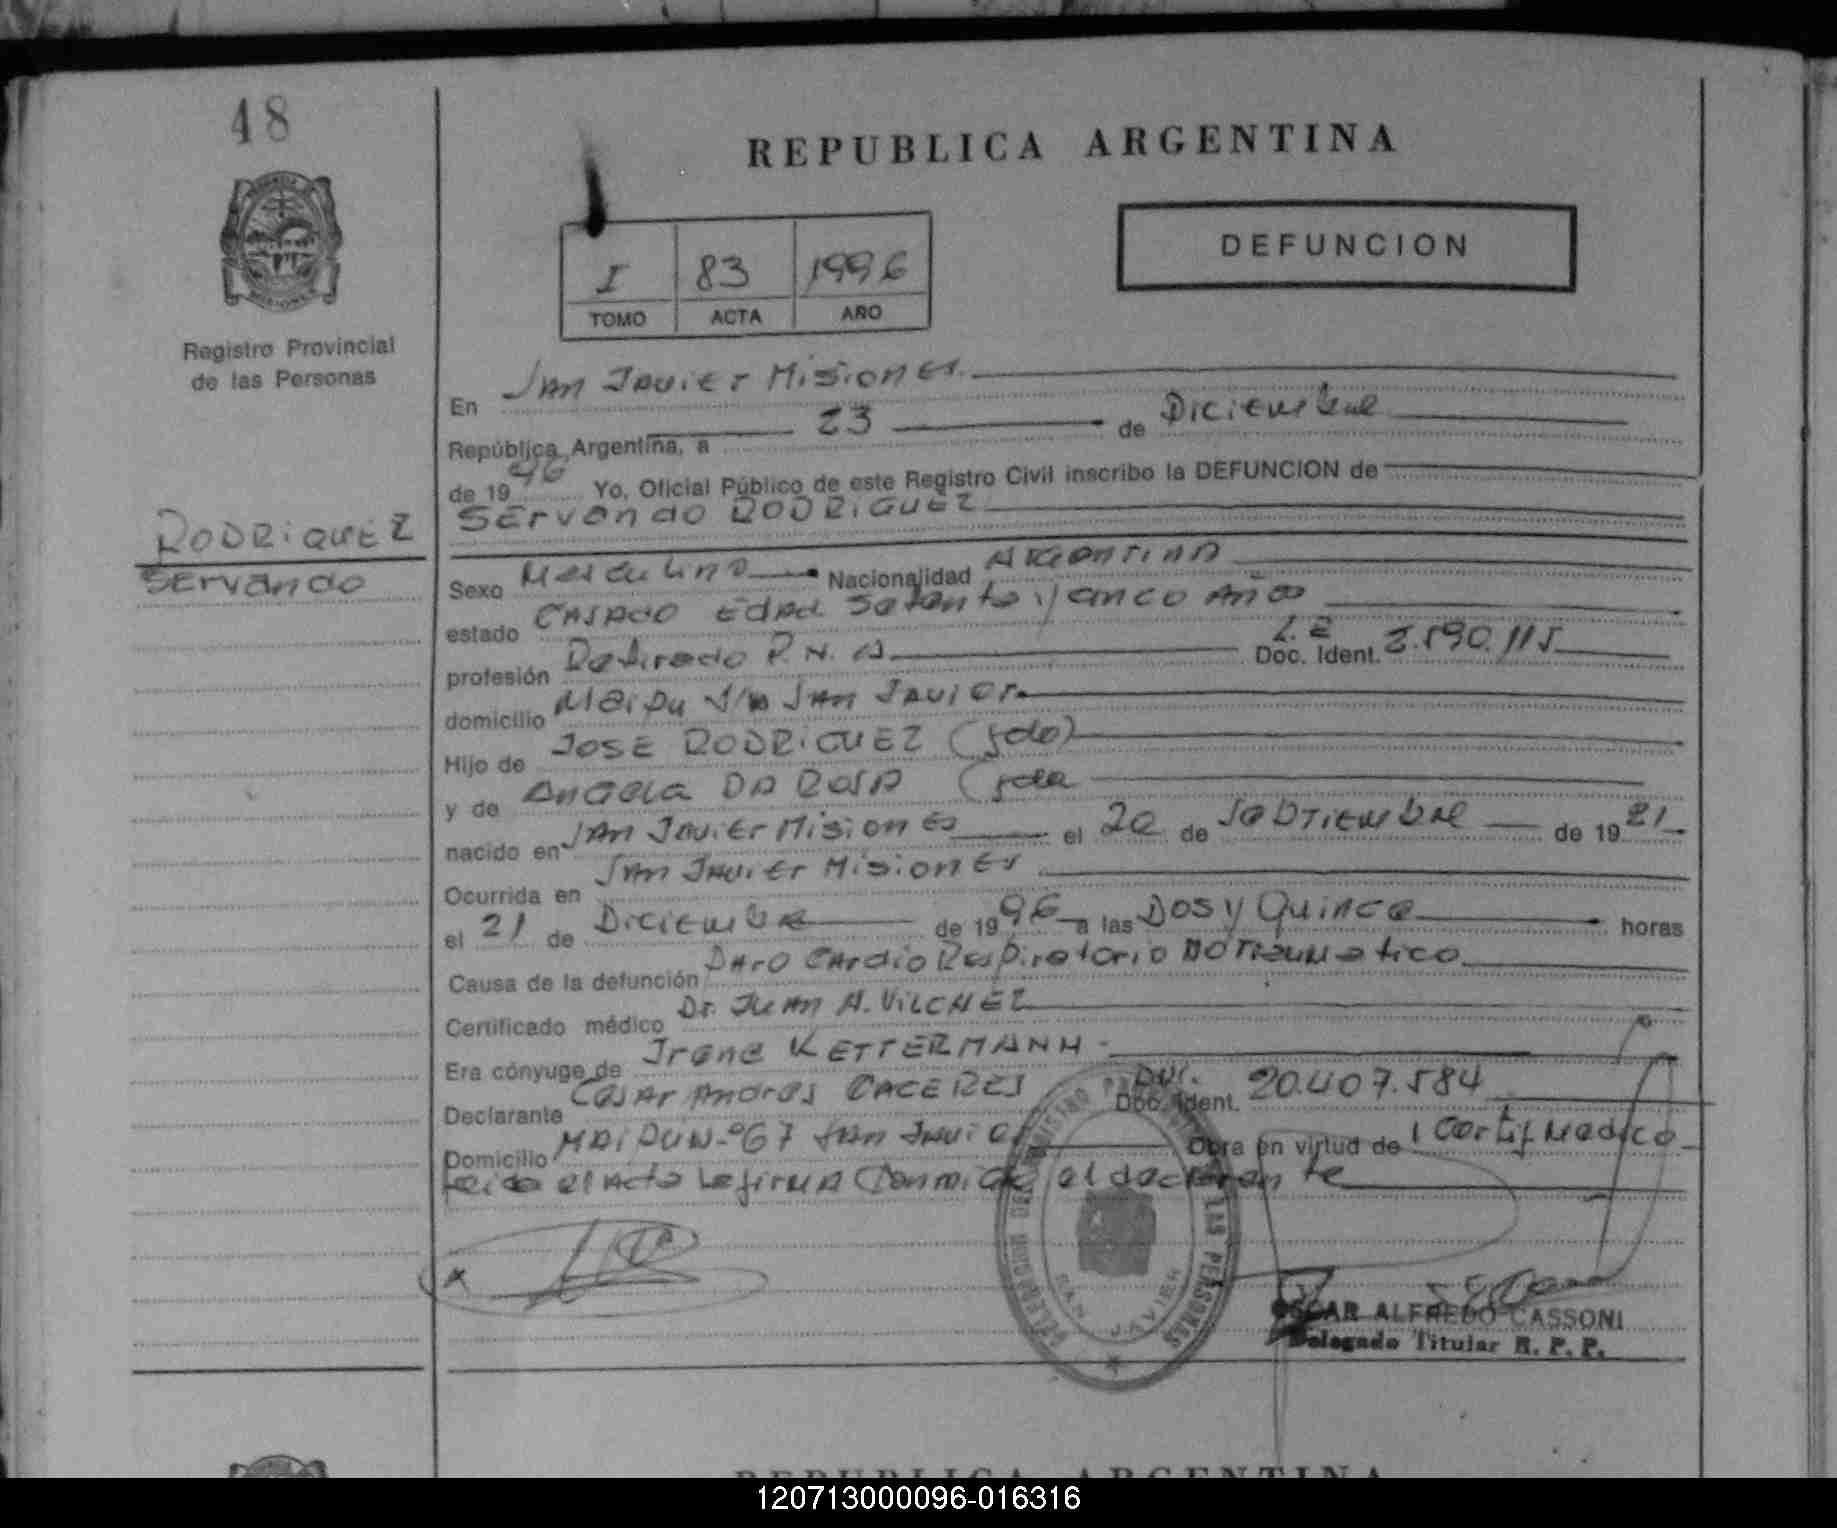 48
REPUBLICA ARGENTINA
DEFUNCION
I 83 1996
TOMO ACTA AÑO
Registro Provincial
de las Personas
En San Javier Misiones
República Argentina, a 23 de Diciembre
de 1996 Yo, Oficial Público de este Registro Civil inscribo la DEFUNCION de
Servando RODRIGUEZ
RODRIGUEZ
Servando
Sexo Masculino Nacionalidad Argentina
estado CASADO Edad Setenta y cinco Años
profesión Retirado P.N.A Doc. Ident. L.E 3.590.115
domicilio Maipu S/n San Javier
Hijo de JOSE RODRIGUEZ (fdo)
y de Angela DA ROSA (fda
nacido en San Javier Misiones el 20 de Sebtiembre de 1921
Ocurrida en San Javier Misiones
el 21 de Diciembre de 1996 a las Dos y Quince horas
Causa de la defunción Paro Cardio Respiratorio NO Traumatico
Certificado médico Dr. Juan A. VILCHEZ
Era cónyuge de Irene KETTERMANN
Declarante Cesar Andres CACERES DNI. Doc. Ident. 20.407.584
Domicilio MAIPU N-º67 San Javier Obra en virtud de 1 Certif Medico
Leida el Acta La firma Conmigo el declarante
DELEGADO REGISTRO PROVINCIAL DE LAS PERSONAS
SAN JAVIER
OSCAR ALFREDO CASSONI
Delegado Titular R. P. P.
REPUBLICA ARGENTINA
120713000096-016316